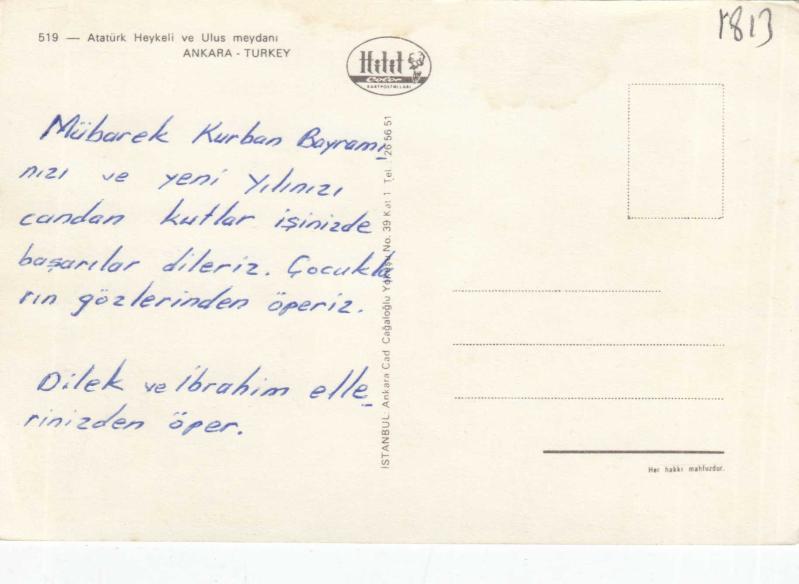 519 — Atatürk Heykeli ve Ulus meydanı
ANKARA - TURKEY
Hitit
Color
KARTPOSTALLARI
1813
Mübarek Kurban Bayramı_
nızı ve yeni Yılınızı
candan kutlar işinizde
başarılar dileriz. Çocukla
rın gözlerinden öperiz.
Dilek ve İbrahim elle_
rinizden öper.
İSTANBUL Ankara Cad Cağaloğlu Yokuşu No. 39 Kat 1 Tel. 26 56 51
Her hakkı mahfuzdur.